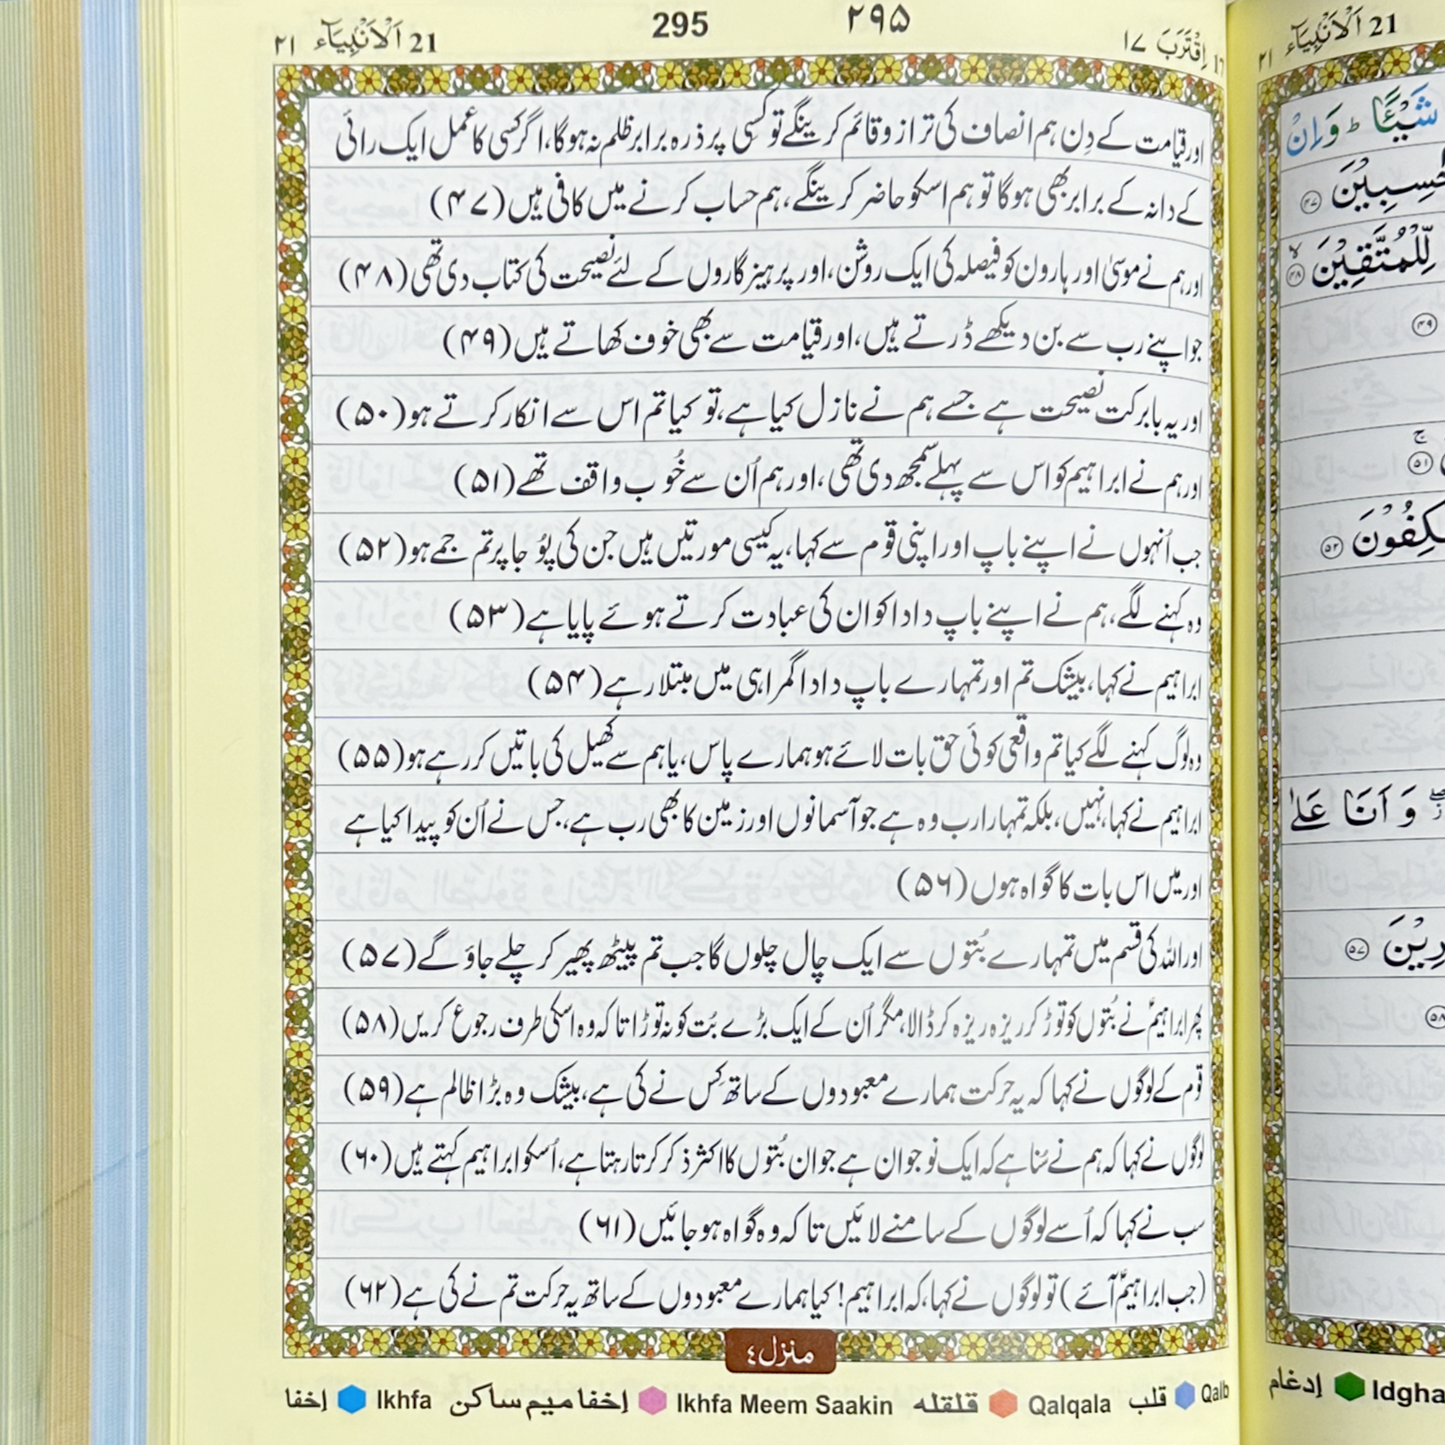 ٢١ اَلْاَنْۢبِيَآء 21
295
۲۹۵
اِقْتَرَبَ ١٧
اور قیامت کے دِن ہم انصاف کی ترازو قائم کرینگے تو کسی پر ذرہ برابر ظلم نہ ہوگا، اگر کسی کا عمل ایک رائی
کے دانہ کے برابر بھی ہوگا تو ہم اسکو حاضر کرینگے، ہم حساب کرنے میں کافی ہیں (۴۷)
اور ہم نے موسیٰ اور ہارون کو فیصلہ کی ایک روشن، اور پرہیزگاروں کے لئے نصیحت کی کتاب دی تھی (۴۸)
جو اپنے رب سے بن دیکھے ڈرتے ہیں، اور قیامت سے بھی خوف کھاتے ہیں (۴۹)
اور یہ بابرکت نصیحت ہے جسے ہم نے نازل کیا ہے، تو کیا تم اس سے انکار کرتے ہو (۵۰)
اور ہم نے ابراہیم کو اس سے پہلے سمجھ دی تھی، اور ہم اُن سے خُوب واقف تھے (۵۱)
جب اُنہوں نے اپنے باپ اور اپنی قوم سے کہا، یہ کیسی مورتیں ہیں جن کی پُوجا پر تم جمے ہو (۵۲)
وہ کہنے لگے، ہم نے اپنے باپ دادا کو ان کی عبادت کرتے ہوئے پایا ہے (۵۳)
ابراہیم نے کہا، بیشک تم اور تمہارے باپ دادا گمراہی میں مبتلا رہے (۵۴)
وہ لوگ کہنے لگے کیا تم واقعی کوئی حق بات لائے ہو ہمارے پاس، یا ہم سے کھیل کی باتیں کر رہے ہو (۵۵)
ابراہیم نے کہا، نہیں، بلکہ تمہارا رب وہ ہے جو آسمانوں اور زمین کا بھی رب ہے، جس نے اُن کو پیدا کیا ہے
اور میں اس بات کا گواہ ہوں (۵۶)
اور اللہ کی قسم میں تمہارے بُتوں سے ایک چال چلوں گا جب تم پیٹھ پھیر کر چلے جاؤ گے (۵۷)
پھر ابراہیمؑ نے بُتوں کو توڑ کر ریزہ ریزہ کر ڈالا، مگر اُن کے ایک بڑے بُت کو نہ توڑا تا کہ وہ اسکی طرف رجوع کریں (۵۸)
قوم کے لوگوں نے کہا کہ یہ حرکت ہمارے معبودوں کے ساتھ کِس نے کی ہے، بیشک وہ بڑا ظالم ہے (۵۹)
لوگوں نے کہا کہ ہم نے سُنا ہے کہ ایک نوجوان ہے جو ان بُتوں کا اکثر ذکر کرتا رہتا ہے، اُسکو ابراہیم کہتے ہیں (۶۰)
سب نے کہا کہ اُسے لوگوں کے سامنے لائیں تا کہ وہ گواہ ہو جائیں (۶۱)
(جب ابراہیمؑ آئے) تو لوگوں نے کہا، کہ ابراہیم! کیا ہمارے معبودوں کے ساتھ یہ حرکت تم نے کی ہے (۶۲)
منزل ٤
اِخفا Ikhfa اِخفا میم ساکن Ikhfa Meem Saakin قلقله Qalqala قلب Qalb
٢١ اَلْاَنْۢبِيَآء 21
شَيْـًٔا ؕ وَاِنْ
حٰسِبِيْنَ ۴۷
لِّلْمُتَّقِيْنَ ۴۸
۴۹
۵۱
۵۲
وَ اَنَا عَلٰى
۵۷
۵۸
اِدغام